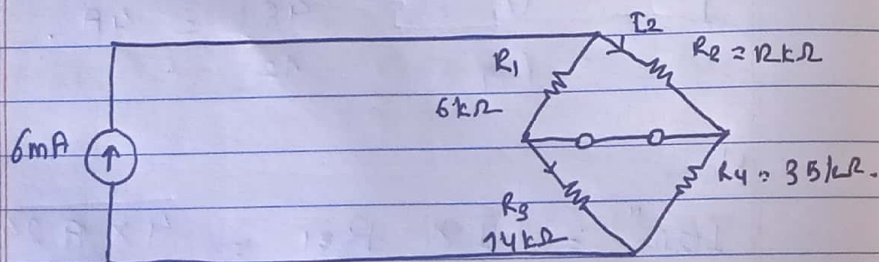 I2
R1
R2 = 12kΩ
6kΩ
6mA
R4 = 35kΩ.
R3
14kΩ